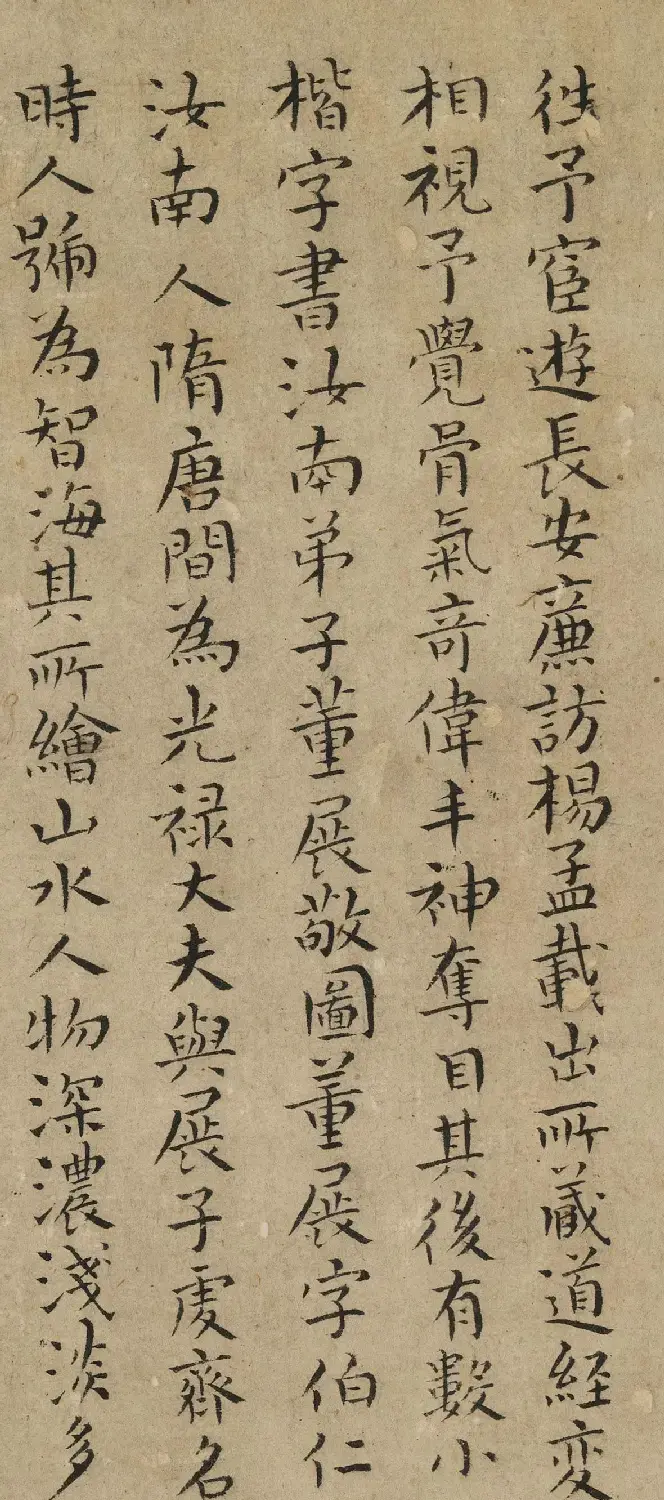 徃予宦遊長安廉訪楊孟載出所蔵道經变
相視予覺骨氣竒偉丰神奪目其後有數小
楷字書汝南弟子董展敬圖董展字伯仁
汝南人隋唐間為光禄大夫與展子虔齊名
時人號為智海其所繪山水人物深濃淺淡多